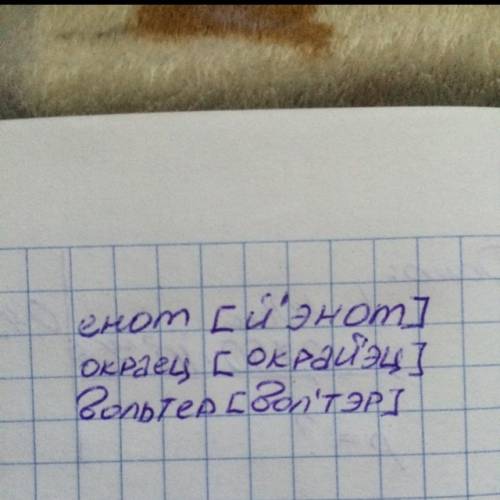 енот [й'энот]
окраец [окрай'эц]
вольтер [вол'тэр]